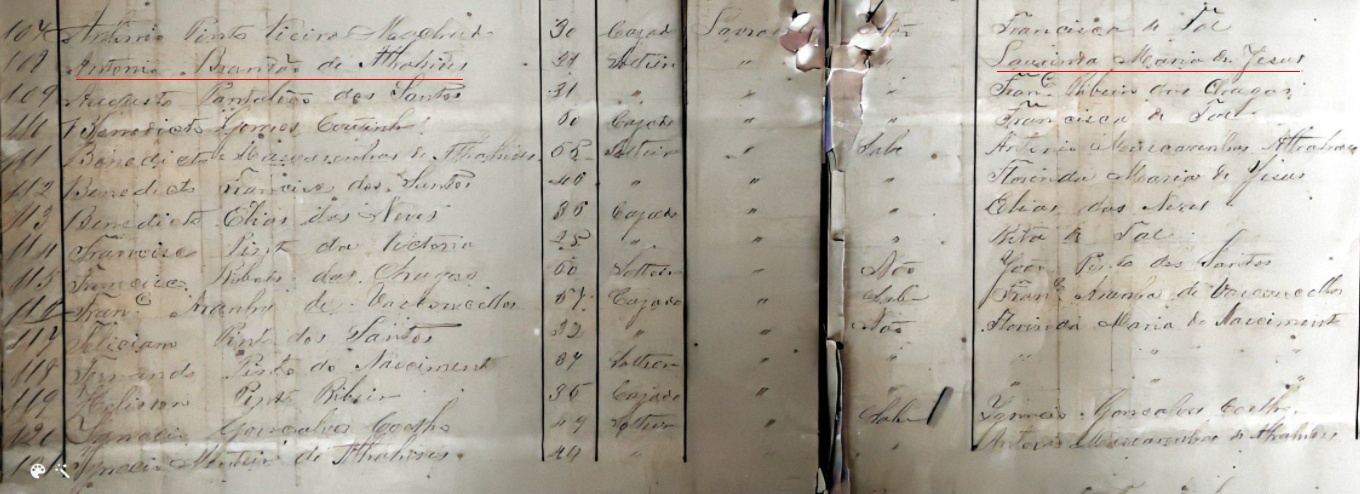 107 Antonio Pinto Vieira Machado 30 Cazado Lavra Não Francisca de Tal
108 Antonio Brandão de Athahides 31 Solteiro " " Laurinda Maria de Jesus
109 Augusto Pantalião dos Santos 31 " " " Fran.co Ribeiro das Chagas
110 Benedicto Gomes Coutinho 60 Cazado " " Francisca de Tal
111 Benedicto Mascarenhas de Athahides 68 Solteiro " Sabe Antonio Mascarenhas Athahides
112 Benedicto Francisco dos Santos 40 " " " Florinda Maria de Jesus
113 Benedicto Elias das Neves 36 Cazado " Elias das Neves
114 Francisco Pinto da Victoria 25 " " " Rita de Tal
115 Francisco Ribeiro das Chagas 60 Solteiro " Não João Pinto dos Santos
116 Fran.co Aranha de Vasconcellos 67 Cazado " Sabe Fran.co Aranha de Vasconcellos
117 Feliciano Pinto dos Santos 32 " " Não Florinda Maria do Nascimento
118 Fernando Pinto do Nascimento 34 Solteiro " " " "
119 Pinto Ribeiro 36 Cazado " "
120 Ignacio Gonsalves Coelho 49 Solteiro " Sabe Ignacio Gonsalves Coelho
Ignacio Monteiro de Athahides 44 " Antonio Mascarenhas de Athahides